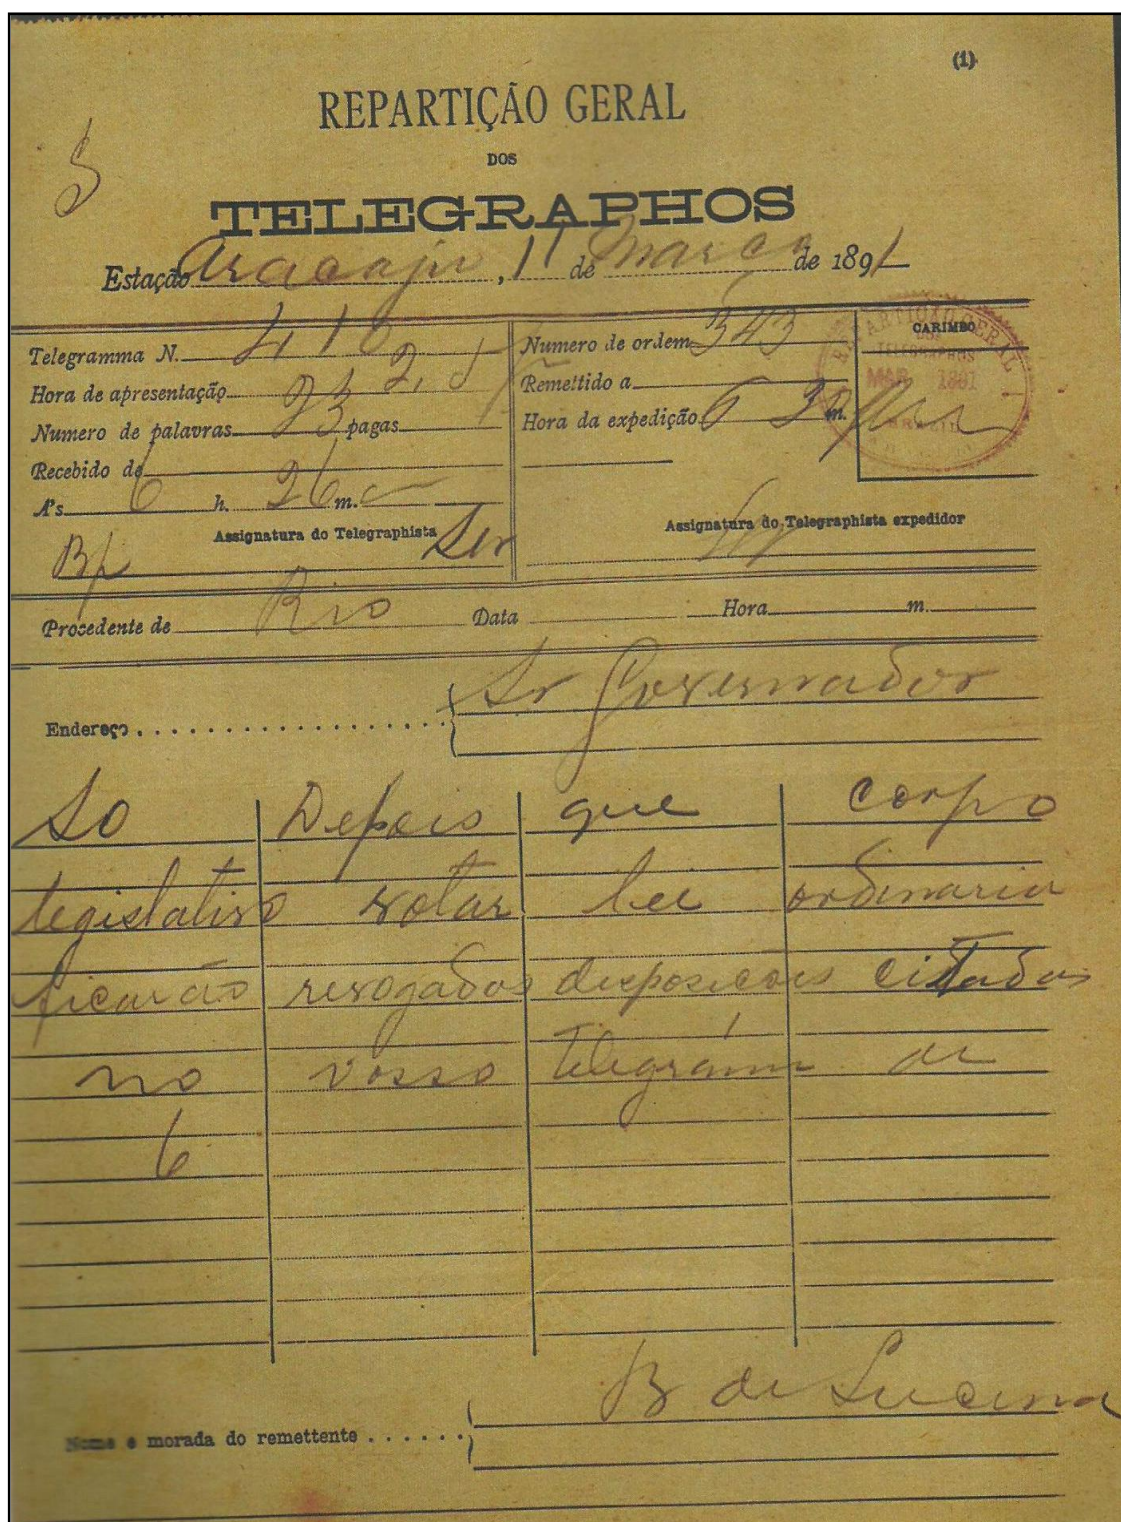 (1)
REPARTIÇÃO GERAL
DOS
TELEGRAPHOS
Estação Aracaju, 11 de Março de 1891
Telegramma N. 410
Hora de apresentação 2,5
Numero de palavras 23 pagas
Recebido de
A's 6 h. 26 m.
Assignatura do Telegraphista
Numero de ordem 343
Remettido a
Hora da expedição 6 30 m.
CARIMBO
REPARTIÇÃO GERAL
DOS
TELEGRAPHOS
MAR 1891
BRAZIL
Assignatura do Telegraphista expedidor
Procedente de Rio Data Hora m.
Endereço Sr Governador
So Depois que corpo
legislativo votar lei ordinaria
ficarão revogados disposições citadas
no vosso telegramm de
6
Nome e morada do remettente B de Lucena